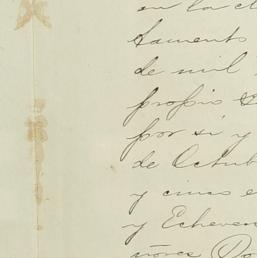 en la c
tamento
de mil
propio
por sí y
de Octub
y cinco e
y Echever
ñores Do